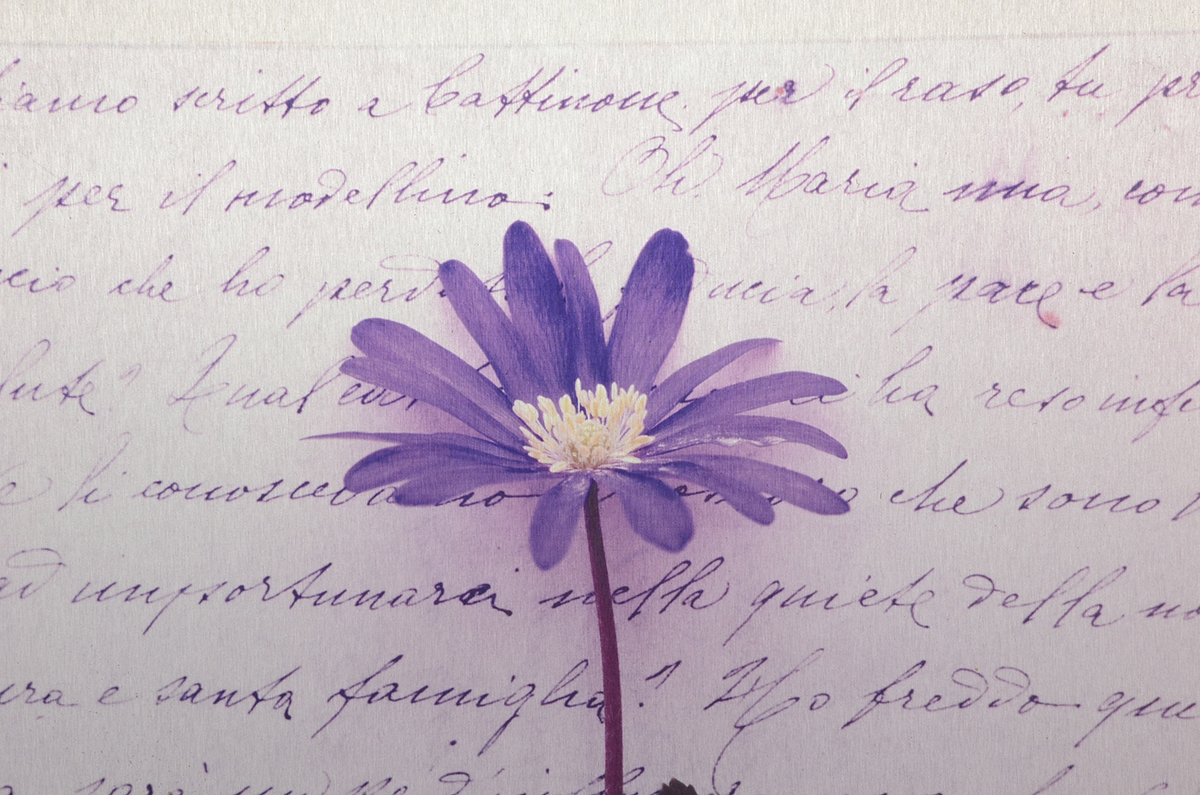 iamo scritto a Cattinone per il raso, tu pr
per il modellino: Oh Maria mia, com
cio che ho perd ducia, la pace e la
lute? Qual ha reso inf
e li conosceva che sono
ad importunarci nella quiete della no
ura e santa famiglia? Ho freddo que
sarà un po' d'